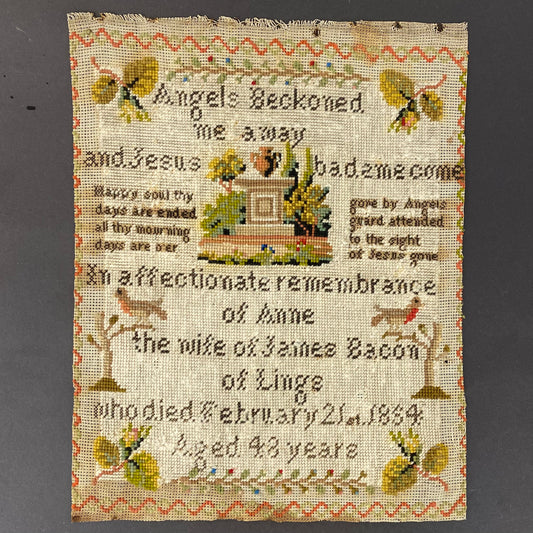 Angels Beckoned
me away
and Jesus bade me come
Happy soul thy
days are ended
all thy mourning
days are o'er
gone by Angels
gard attended
to the sight
of Jesus gone
In affectionate remembrance
of Anne
the wife of James Bacon
of Lings
who died February 21st 1854
Aged 48 years